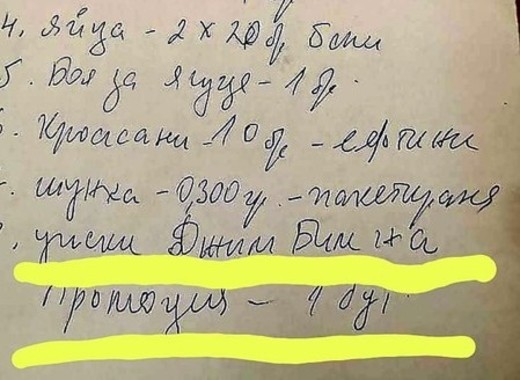 4. яйца - 2 х 20бр бели
5. Боя за яйца - 1 бр.
Кроасани - 10 бр - евтини
шунка - 0,300 гр. - пакетирана
уиски Джим Бим на
Промоция - 1 бут.